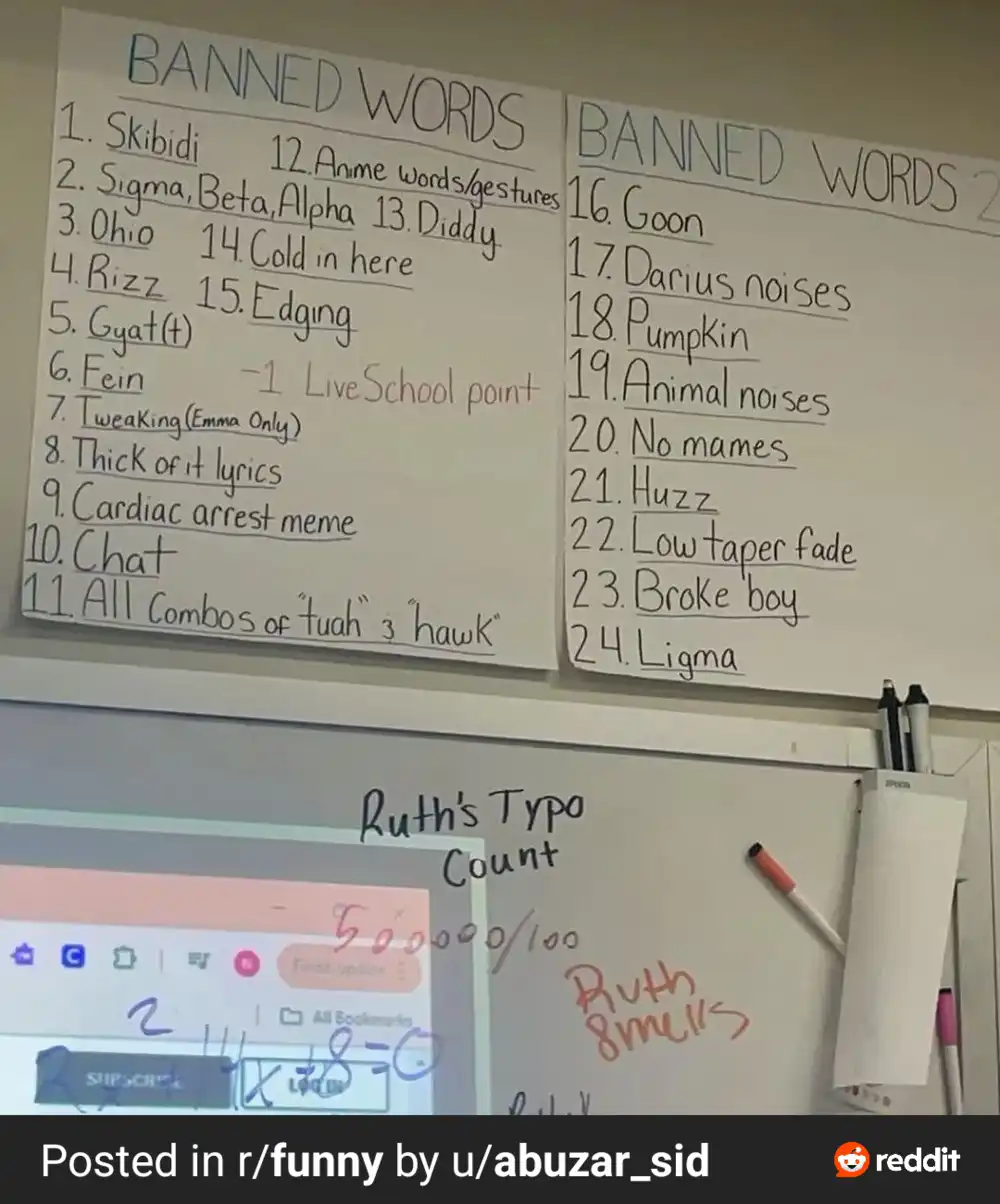 BANNED WORDS
1. Skibidi
2. Sigma, Beta, Alpha
3. Ohio
4. Rizz
5. Gyat(t)
6. Fein
7. Tweaking (Emma Only)
8. Thick of it lyrics
9. Cardiac arrest meme
10. Chat
11. All Combos of "tuah" & "hawk"
12. Anime words/gestures
13. Diddy
14. Cold in here
15. Edging
-1 LiveSchool point
BANNED WORDS 2
16. Goon
17. Darius noises
18. Pumpkin
19. Animal noises
20. No mames
21. Huzz
22. Low taper fade
23. Broke boy
24. Ligma
Ruth's Typo
Count
500000/100
Ruth
Smells
All Bookmarks
2
x+8=0
SUBSCRIBE
LOG IN
EPSON
Posted in r/funny by u/abuzar_sid
reddit